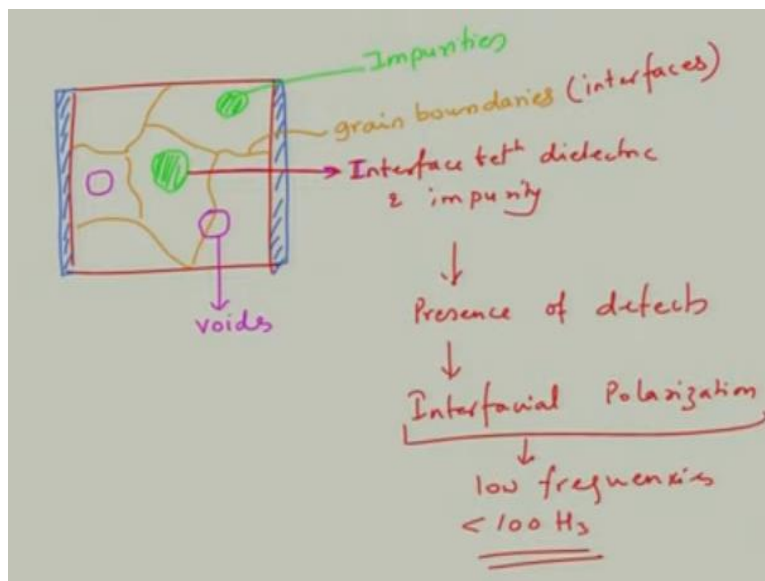 Impurities
grain boundaries (interfaces)
Interface betn dielectric
& impurity
voids
Presence of defects
Interfacial Polarization
low frequencies
< 100 Hz